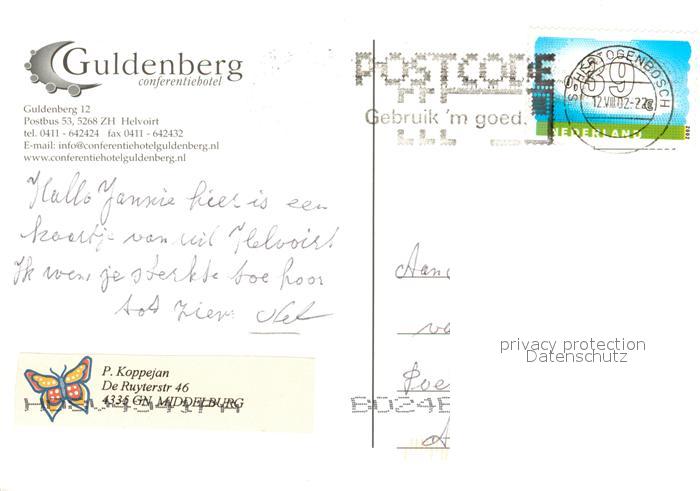 Guldenberg
conferentiehotel
Guldenberg 12
Postbus 53, 5268 ZH Helvoirt
tel. 0411 - 642424 fax 0411 - 642432
E-mail: info@conferentiehotelguldenberg.nl
www.conferentiehotelguldenberg.nl
POSTCODE
Gebruik 'm goed.
'S-HERTOGENBOSCH
39
12.VIII.02-22
NEDERLAND
2002
Hallo Jannie hier is een
kaartje van uit Helvoirt
Ik wens je sterkte toe hoor
tot ziens Net
P. Koppejan
De Ruyterstr 46
4335 GN MIDDELBURG
privacy protection
Datenschutz